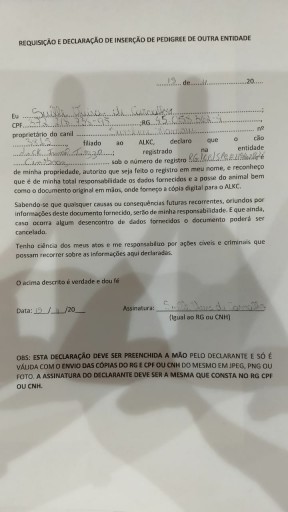 REQUISIÇÃO E DECLARAÇÃO DE INSERÇÃO DE PEDIGREE DE OUTRA ENTIDADE
de 20
Eu
CPF RG
proprietário do canil nº
filiado ao ALKC, declaro que o cão
registrado na entidade
sob o número de registro é
de minha propriedade, autorizo que seja feito o registro em meu nome, e reconheço
que é de minha total responsabilidade os dados fornecidos e a posse do animal bem
como o documento original em mãos, onde forneço a cópia digital para o ALKC.
Sabendo-se que quaisquer causas ou consequências futuras recorrentes, oriundos por
informações deste documento fornecido, serão de minha responsabilidade. E que ainda,
caso ocorra algum desencontro de dados fornecidos o documento poderá ser
cancelado.
Tenho ciência dos meus atos e me responsabilizo por ações cíveis e criminais que
possam recorrer sobre as informações aqui declaradas.
O acima descrito é verdade e dou fé
Data: / /20 Assinatura:
(Igual ao RG ou CNH)
OBS: ESTA DECLARAÇÃO DEVE SER PREENCHIDA A MÃO PELO DECLARANTE E SÓ É
VÁLIDA COM O ENVIO DAS CÓPIAS DO RG E CPF OU CNH DO MESMO EM JPEG, PNG OU
FOTO. A ASSINATURA DO DECLARANTE DEVE SER A MESMA QUE CONSTA NO RG CPF
OU CNH.